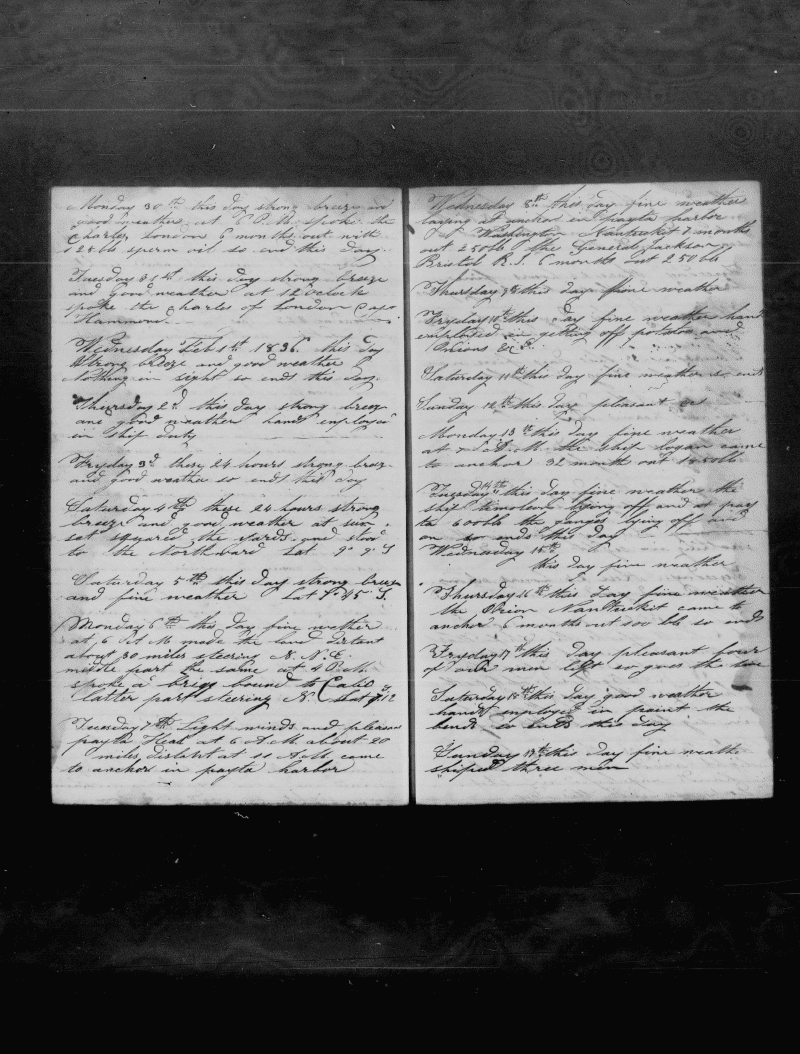 Monday 30th this day strong breeze and
good weather at 6 P M spoke the
Charles London 6 months out with
125 bb sperm oil so end this day
Tuesday 31st this day strong breeze
and good weather at 12 Oclock
spoke the Charles of London Capt
Hammond
Wednesday Feb 1th 1836 this day
strong breeze and good weather
Nothing in sight so ends this day
Thursday 2d this day strong breez
and good weather hands employed
in ship duty
Fryday 3d these 24 hours strong breez
and good weather so ends this day
Saturday 4th these 24 hours strong
breeze and good weather at sun
set squared the yards and stood
to the Northward Lat 9° 9' S
Saturday 5th this day strong breeze
and fine weather Lat 45 S
Monday 6th this day fine wether
at 6 A M made the land distant
about 30 miles steering N. N. E.
middle part the same at 4 P M
spoke a brigg bound to Calio
latter part steering N. Lat 12
Tuesday 7th Light winds and pleasant
payta Head at 6 A M about 20
miles distant at 11 A M came
to anchor in payta harbor
Wednesday 8th this day fine weather
laying at anchor in payta harbor
Washington Nantuckit 2 months
out 250 bb the General Jackson
Bristol R. I. 6 months out 250 bb
Thursday 9th this day fine weather
Fryday 10th this day fine weather hands
employed in getting off potatoes and
Onions &c
Saturday 11th this day fine weather so ends
Sunday 12th this day pleasant
Monday 13th this day fine weather
at 7 A. M. the ship Logan came
to anchor 32 month out bb
Tuesday 14th this day fine weather the
ship timoleon lying off and at pay
ta 600 bb the ganges lying off and
on so ends this day
Wednesday 15th
this day fine weather
Thursday 16th this day fine weather
the Orion Nantuckit came to
anchor 6 months out 100 bb so ends
Fryday 17th this day pleasant four
of our men left so goes the time
Saturday 18th this day good weather
hands employed in paint the
bends so ends this day
Sunday 19th this day fine weathe
shiped three men